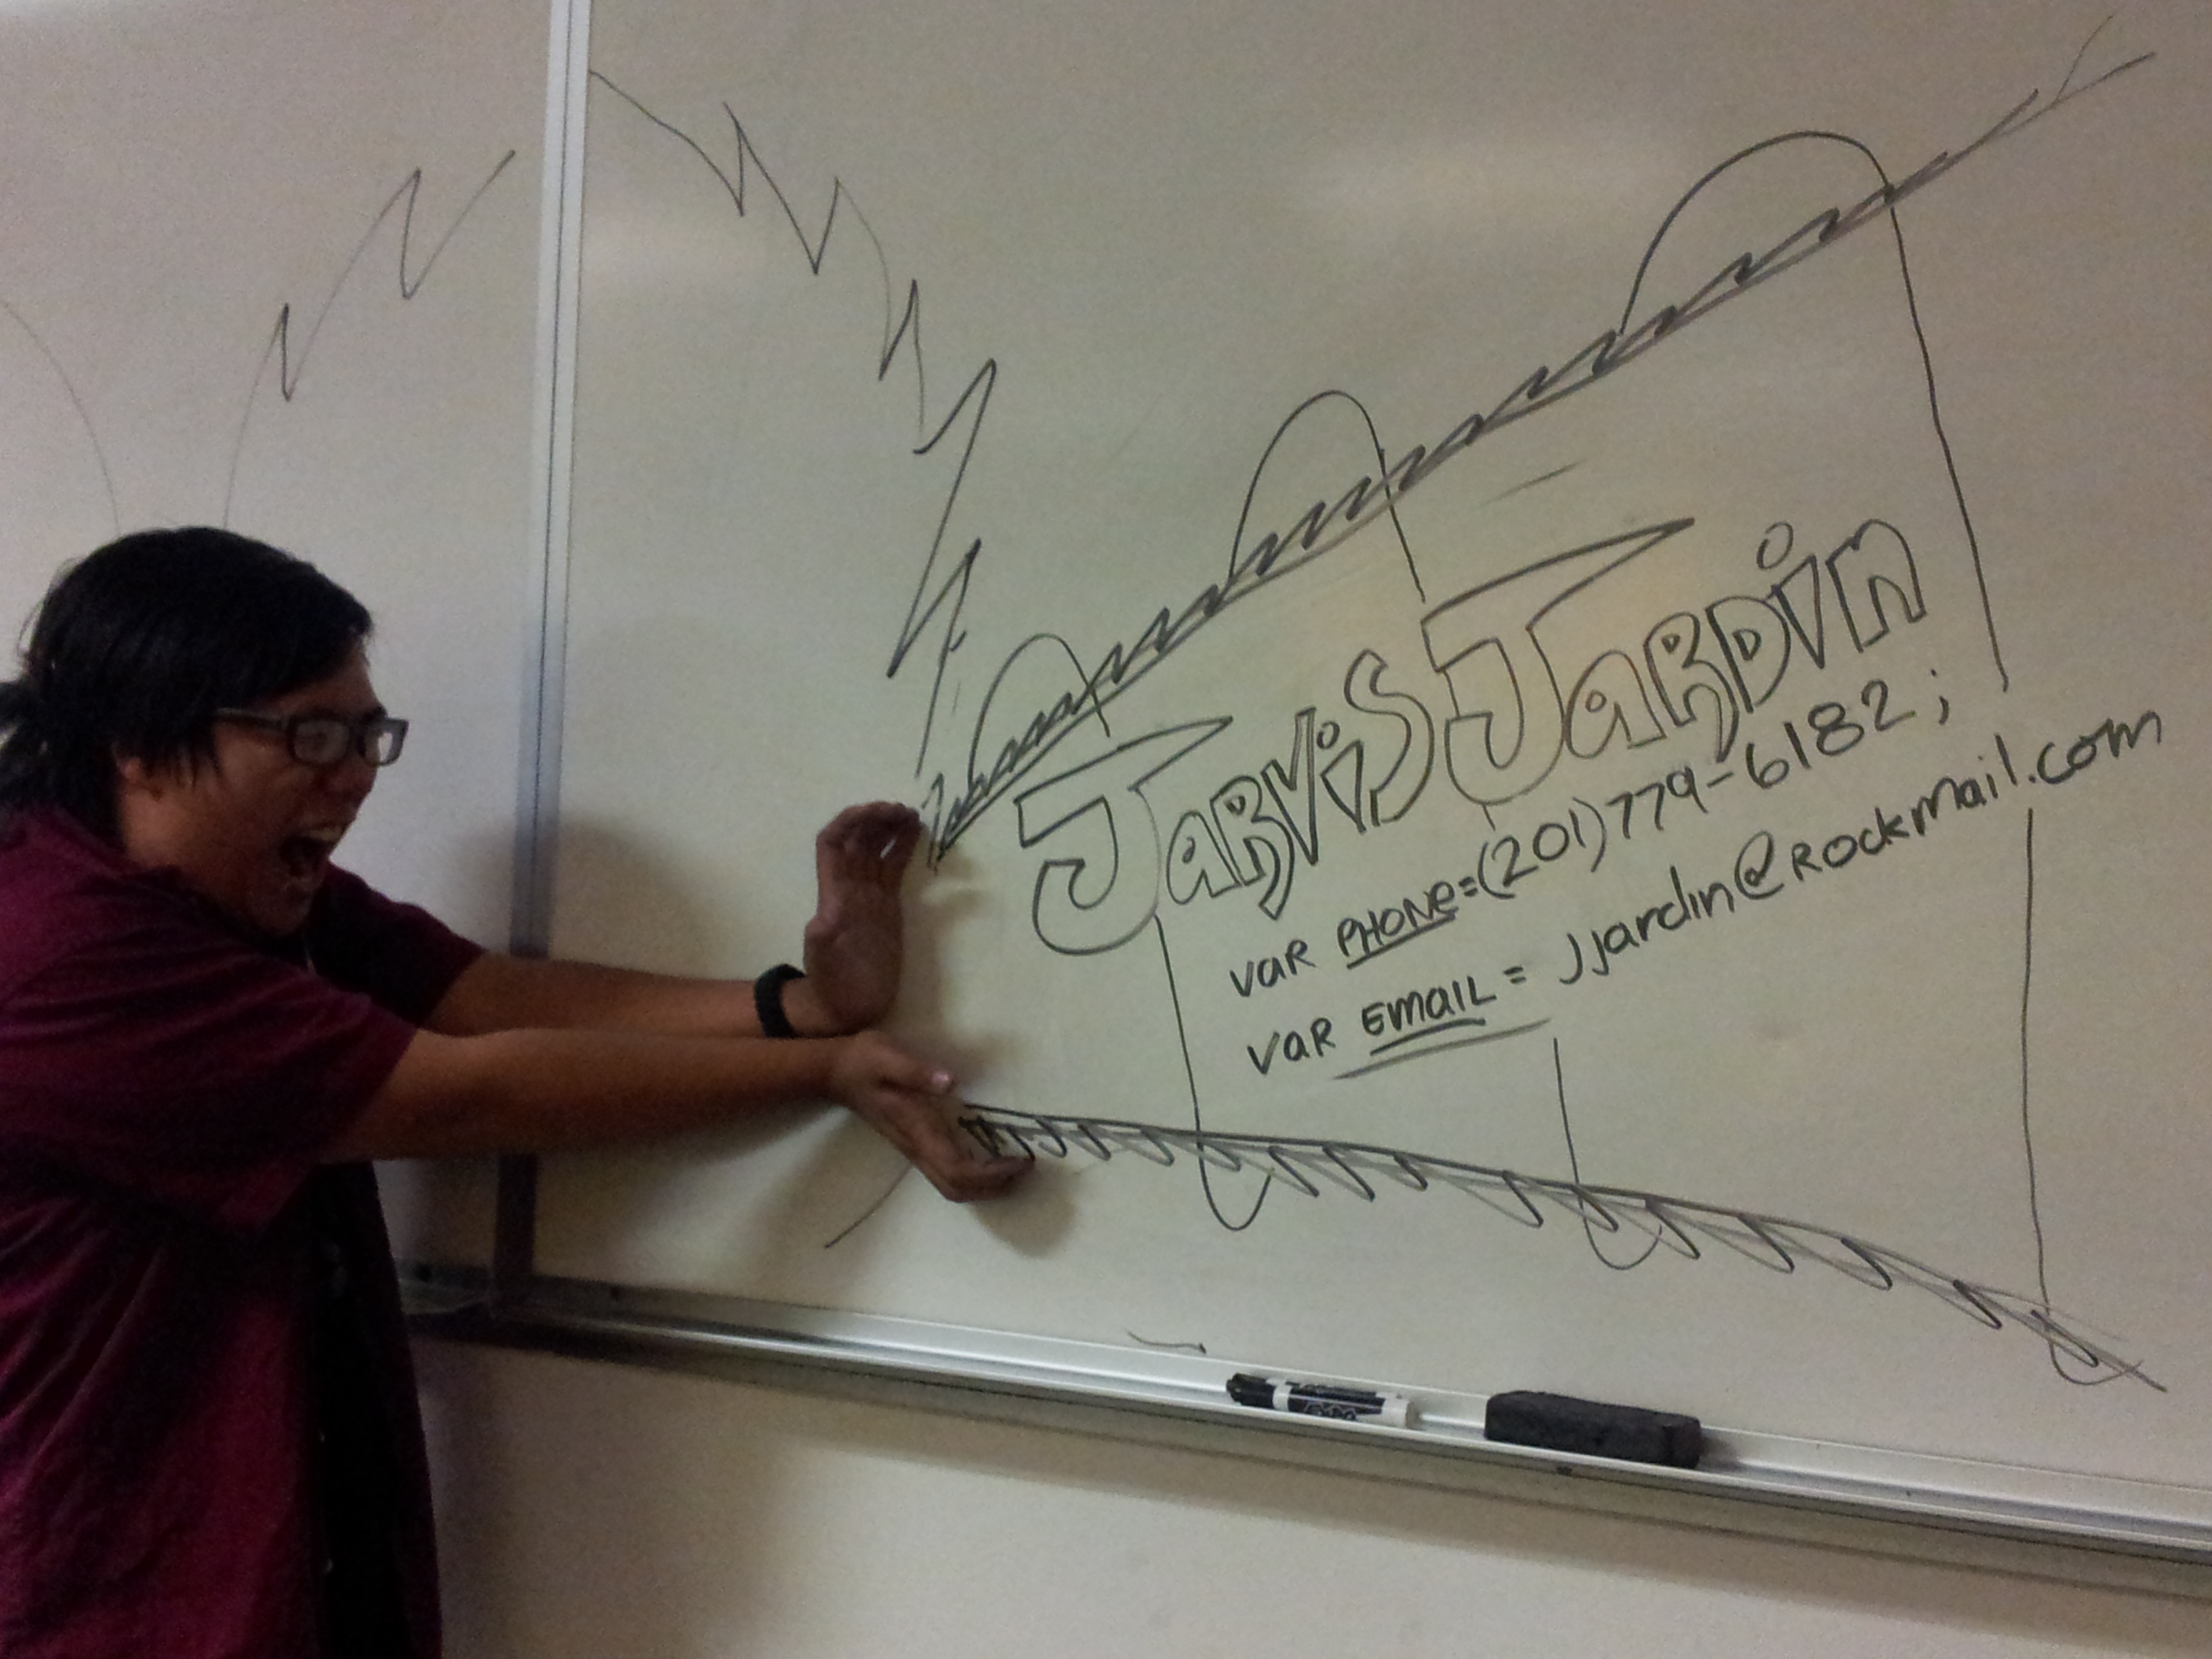 JaRViS JaRDin
vaR PHONe=(201)779-6182;
vaR EmaIL = Jjardin@Rockmail.com